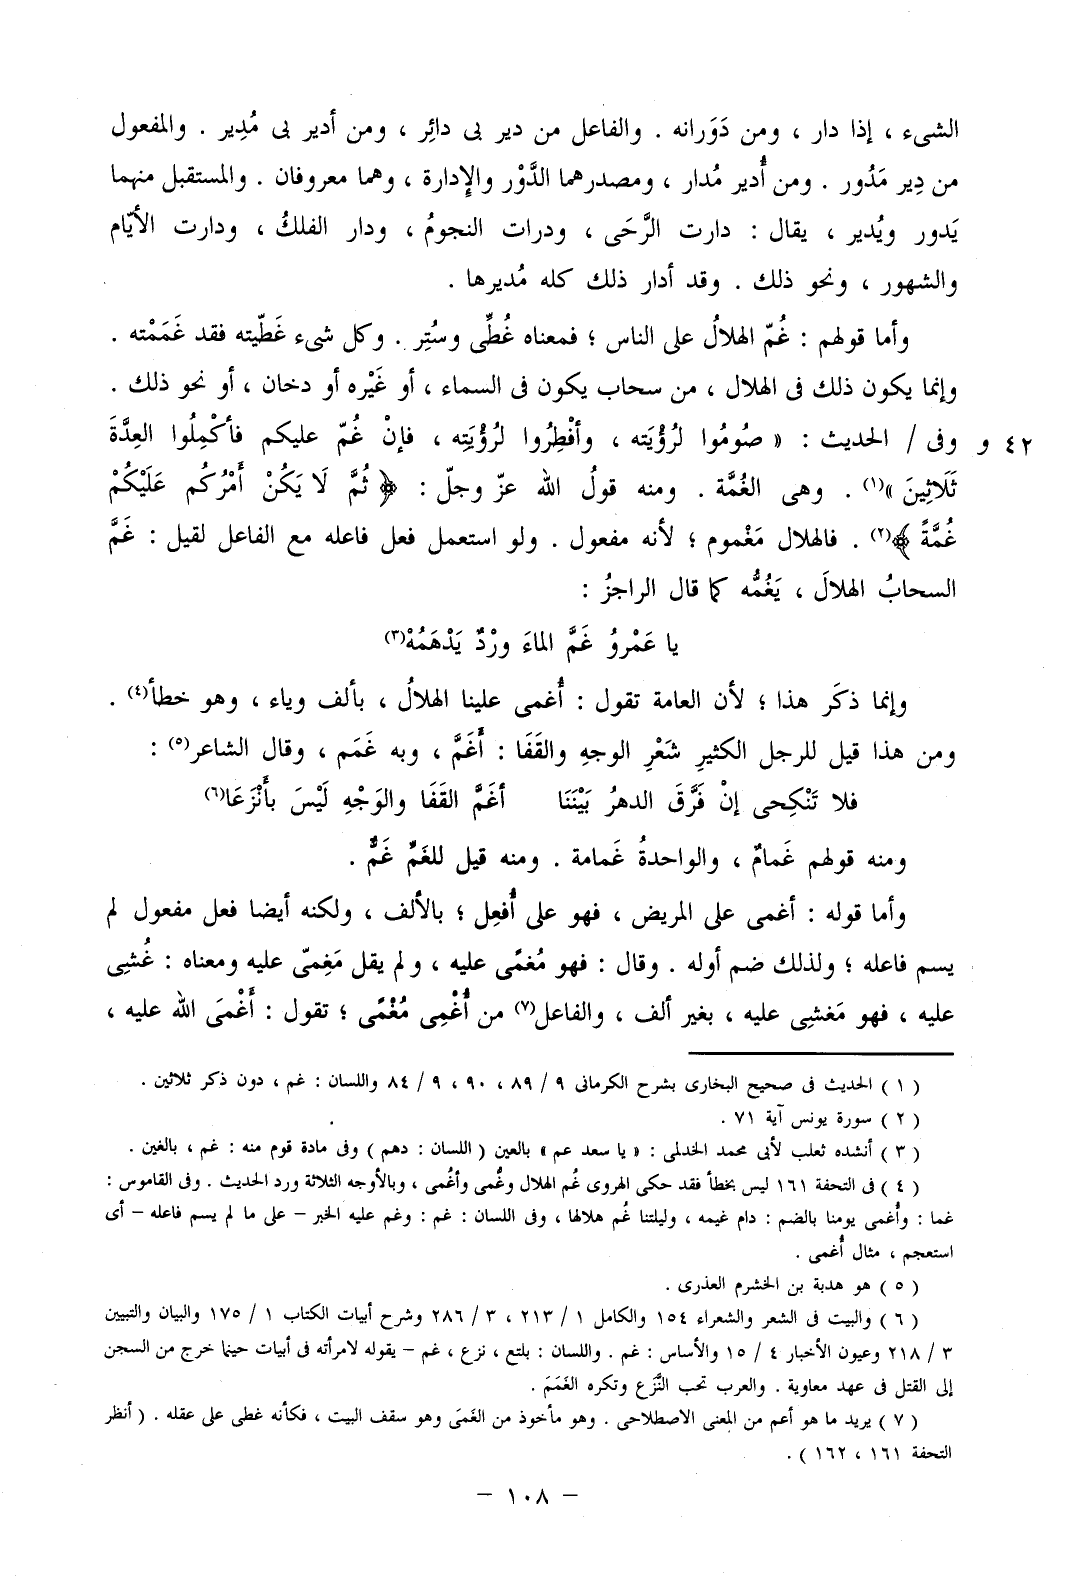 الشىء ، إذا دار ، ومن دَوَرانه . والفاعل من دير بى دائِر ، ومن أدير بى مُدِير . والمفعول
من دِير مَدُور . ومن أُدير مُدار ، ومصدرهما الدَّوْر والإِدارة ، وهما معروفان . والمستقبل منهما
يَدور ويُدير ، يقال : دارت الرَّحَى ، ودرات النجومُ ، ودار الفلكُ ، ودارت الأيّام
والشهور ، ونحو ذلك . وقد أدار ذلك كله مُديرها .
وأما قولهم : غُمّ الهلالُ على الناس ؛ فمعناه غُطِّى وسُتِر . وكل شىء غَطّيته فقد غَمَمْته .
وإنما يكون ذلك فى الهلال ، من سحاب يكون فى السماء ، أو غَيْره أو دخان ، أو نحو ذلك .
٤٢ و وفى / الحديث : « صُومُوا لرُؤْيَته ، وأفْطِرُوا لرُؤْيَتِه ، فإنْ غُمّ عليكم فأكْمِلُوا العِدَّةَ
ثَلَاثِينَ »(١) . وهى الغُمَّة . ومنه قولُ الله عزّ وجلّ : ﴿ ثُمَّ لَا يَكُنْ أَمْرُكُم عَلَيْكُمْ
غُمَّةً ﴾(٢) . فالهلال مَغْموم ؛ لأنه مفعول . ولو استعمل فعل فاعله مع الفاعل لقيل : غَمَّ
السحابُ الهلالَ ، يَغُمُّه كما قال الراجزُ :
يا عَمْروُ غَمَّ الماءَ ورْدٌ يَدْهَمُهْ(٣)
وإنما ذكَر هذا ؛ لأن العامة تقول : أُغمى علينا الهلالُ ، بألف وياء ، وهو خطأ(٤) .
ومن هذا قيل للرجل الكثيرِ شَعْرِ الوجهِ والقَفَا : أَغَمَّ ، وبه غَمَم ، وقال الشاعر(٥) :
فلا تَنْكِحى إنْ فَرَّقَ الدهرُ بَيْنَنَا أغَمَّ القَفَا والوَجْهِ لَيْسَ بأَنْزَعَا(٦)
ومنه قولهم غَمامٌ ، والواحدةُ غَمامة . ومنه قيل للغَمِّ غَمٌّ .
وأما قوله : أغمى على المريض ، فهو على أُفعِل ؛ بالألف ، ولكنه أيضا فعل مفعول لم
يسم فاعله ؛ ولذلك ضم أوله . وقال : فهو مُغمًى عليه ، ولم يقل مَغِمىّ عليه ومعناه : غُشِى
عليه ، فهو مَغشِى عليه ، بغير ألف ، والفاعل(٧) من أُغْمِى مُغْمًى ؛ تقول : أَغْمَى الله عليه ،
( ١ ) الحديث فى صحيح البخارى بشرح الكرمانى ٩ / ٨٩ ، ٩٠ ، ٩ / ٨٤ واللسان : غم ، دون ذكر ثلاثين .
( ٢ ) سورة يونس آية ٧١ .
( ٣ ) أنشده ثعلب لأبى محمد الخدلمى : « يا سعد عم » بالعين ( اللسان : دهم ) وفى مادة قوم منه : غم ، بالغين .
( ٤ ) فى التحفة ١٦١ ليس بخطأ فقد حكى الهروى غُم الهلال وغُمى وأغُمى ، وبالأوجه الثلاثة ورد الحديث . وفى القاموس :
غما : وأُغمى يومنا بالضم : دام غيمه ، وليلتنا غُم هلالها ، وفى اللسان : غم : وغم عليه الخبر – على ما لم يسم فاعله – أى
استعجم ، مثال أُغمى .
( ٥ ) هو هدبة بن الخشرم العذرى .
( ٦ ) والبيت فى الشعر والشعراء ١٥٤ والكامل ١ / ٢١٣ ، ٣ / ٢٨٦ وشرح أبيات الكتاب ١ / ١٧٥ والبيان والتبيين
٣ / ٢١٨ وعيون الأخبار ٤ / ١٥ والأساس : غم . واللسان : بلتع ، نزع ، غم – يقوله لامرأته فى أبيات حينما خرج من السجن
إلى القتل فى عهد معاوية . والعرب تحب النَّزَع وتكره الغَمَمَ .
( ٧ ) يريد ما هو أعم من المعنى الاصطلاحى . وهو مأخوذ من الغَمَى وهو سقف البيت ، فكأنه غطى على عقله . ( أنظر
التحفة ١٦١ ، ١٦٢ ) .
– ١٠٨ –